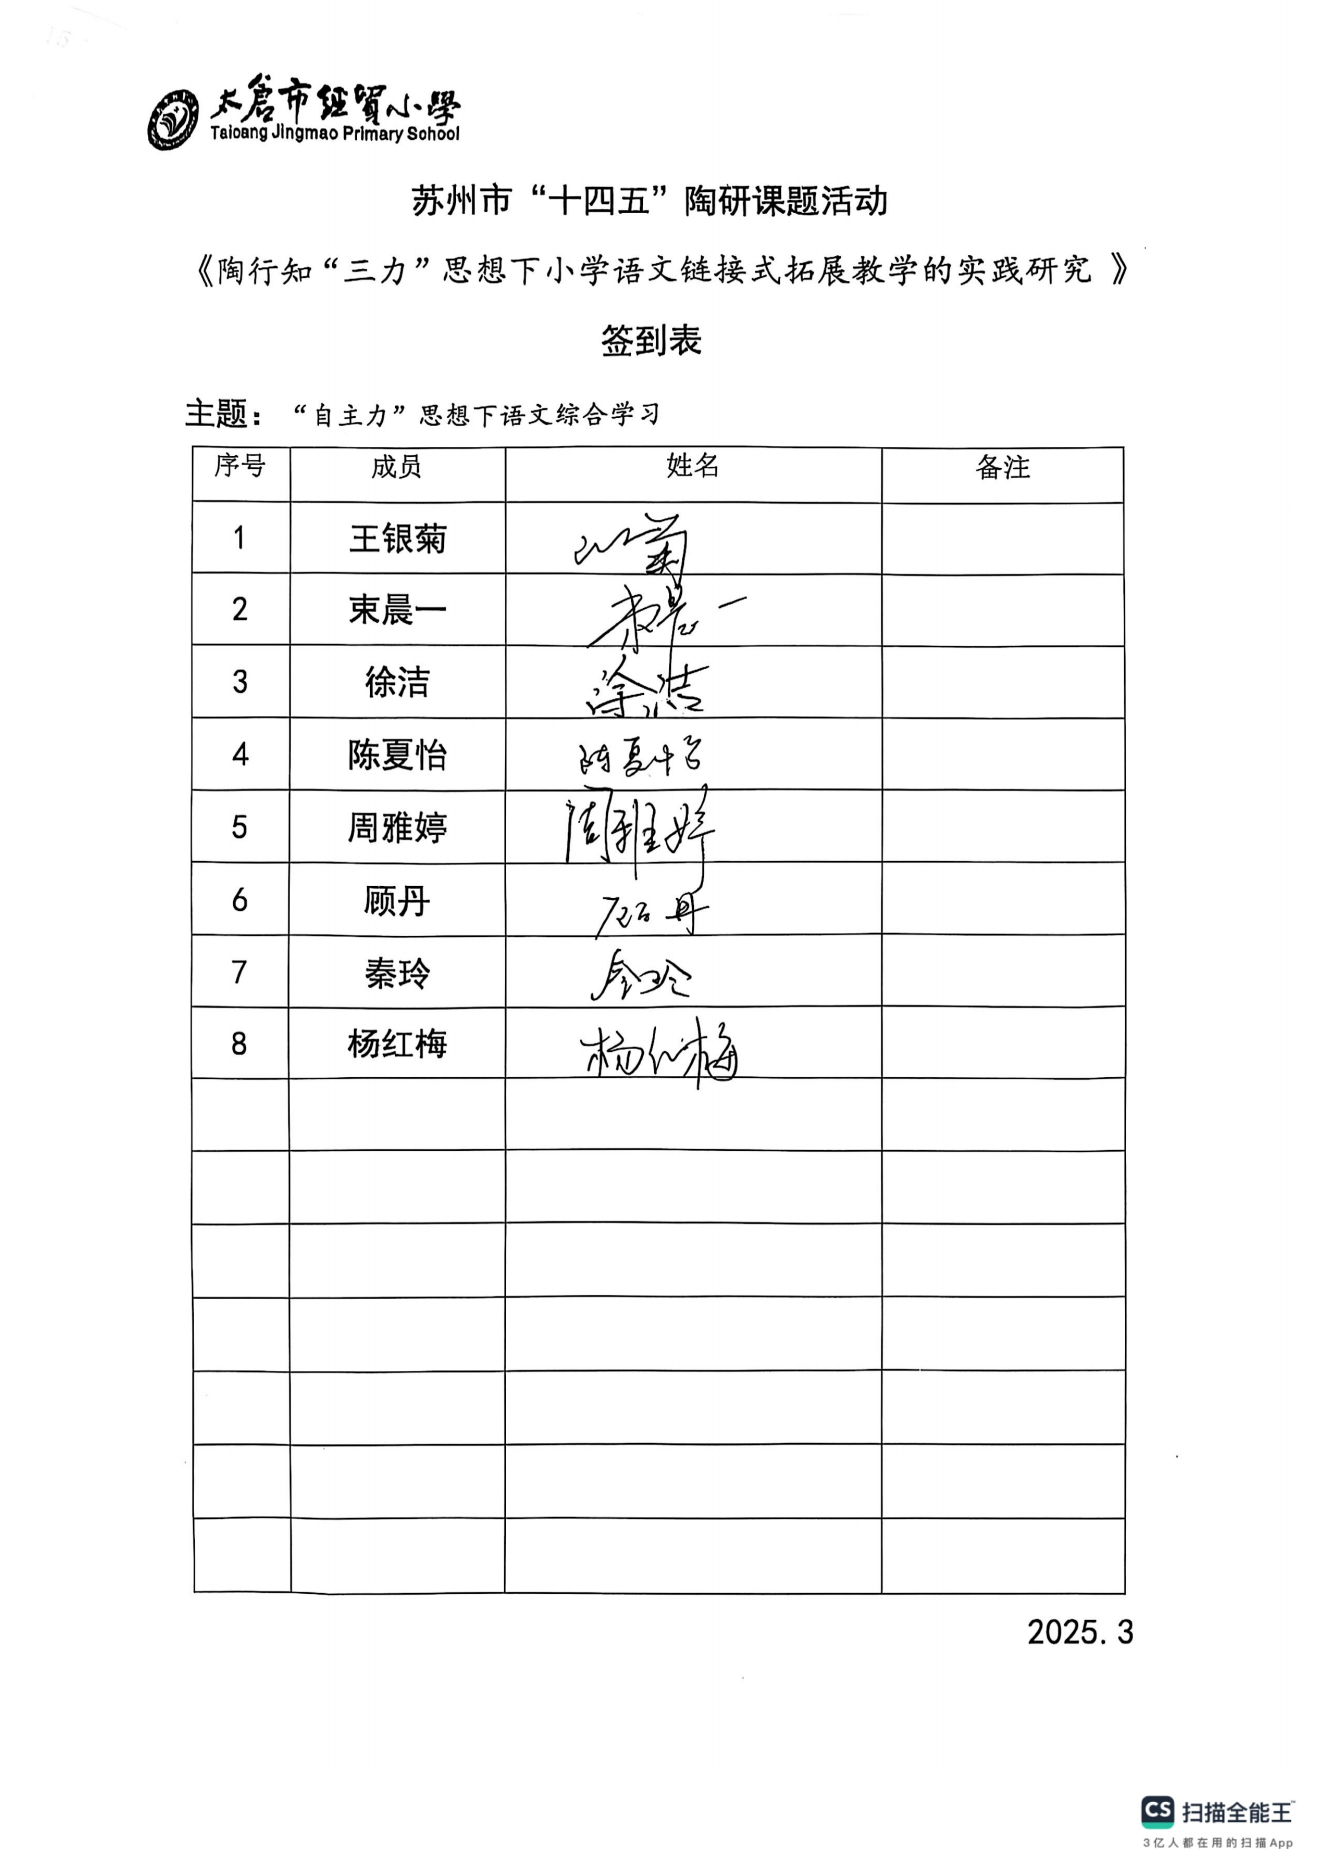 太倉市经贸小學
Taicang Jingmao Primary School
苏州市“十四五”陶研课题活动
《陶行知“三力”思想下小学语文链接式拓展教学的实践研究 》
签到表
主题： “自主力”思想下语文综合学习
序号 成员 姓名 备注
1 王银菊
2 束晨一 束晨一
3 徐洁 徐洁
4 陈夏怡 陈夏怡
5 周雅婷 周雅婷
6 顾丹 顾丹
7 秦玲 秦玲
8 杨红梅 杨红梅
2025.3
CS 扫描全能王
3亿人都在用的扫描App